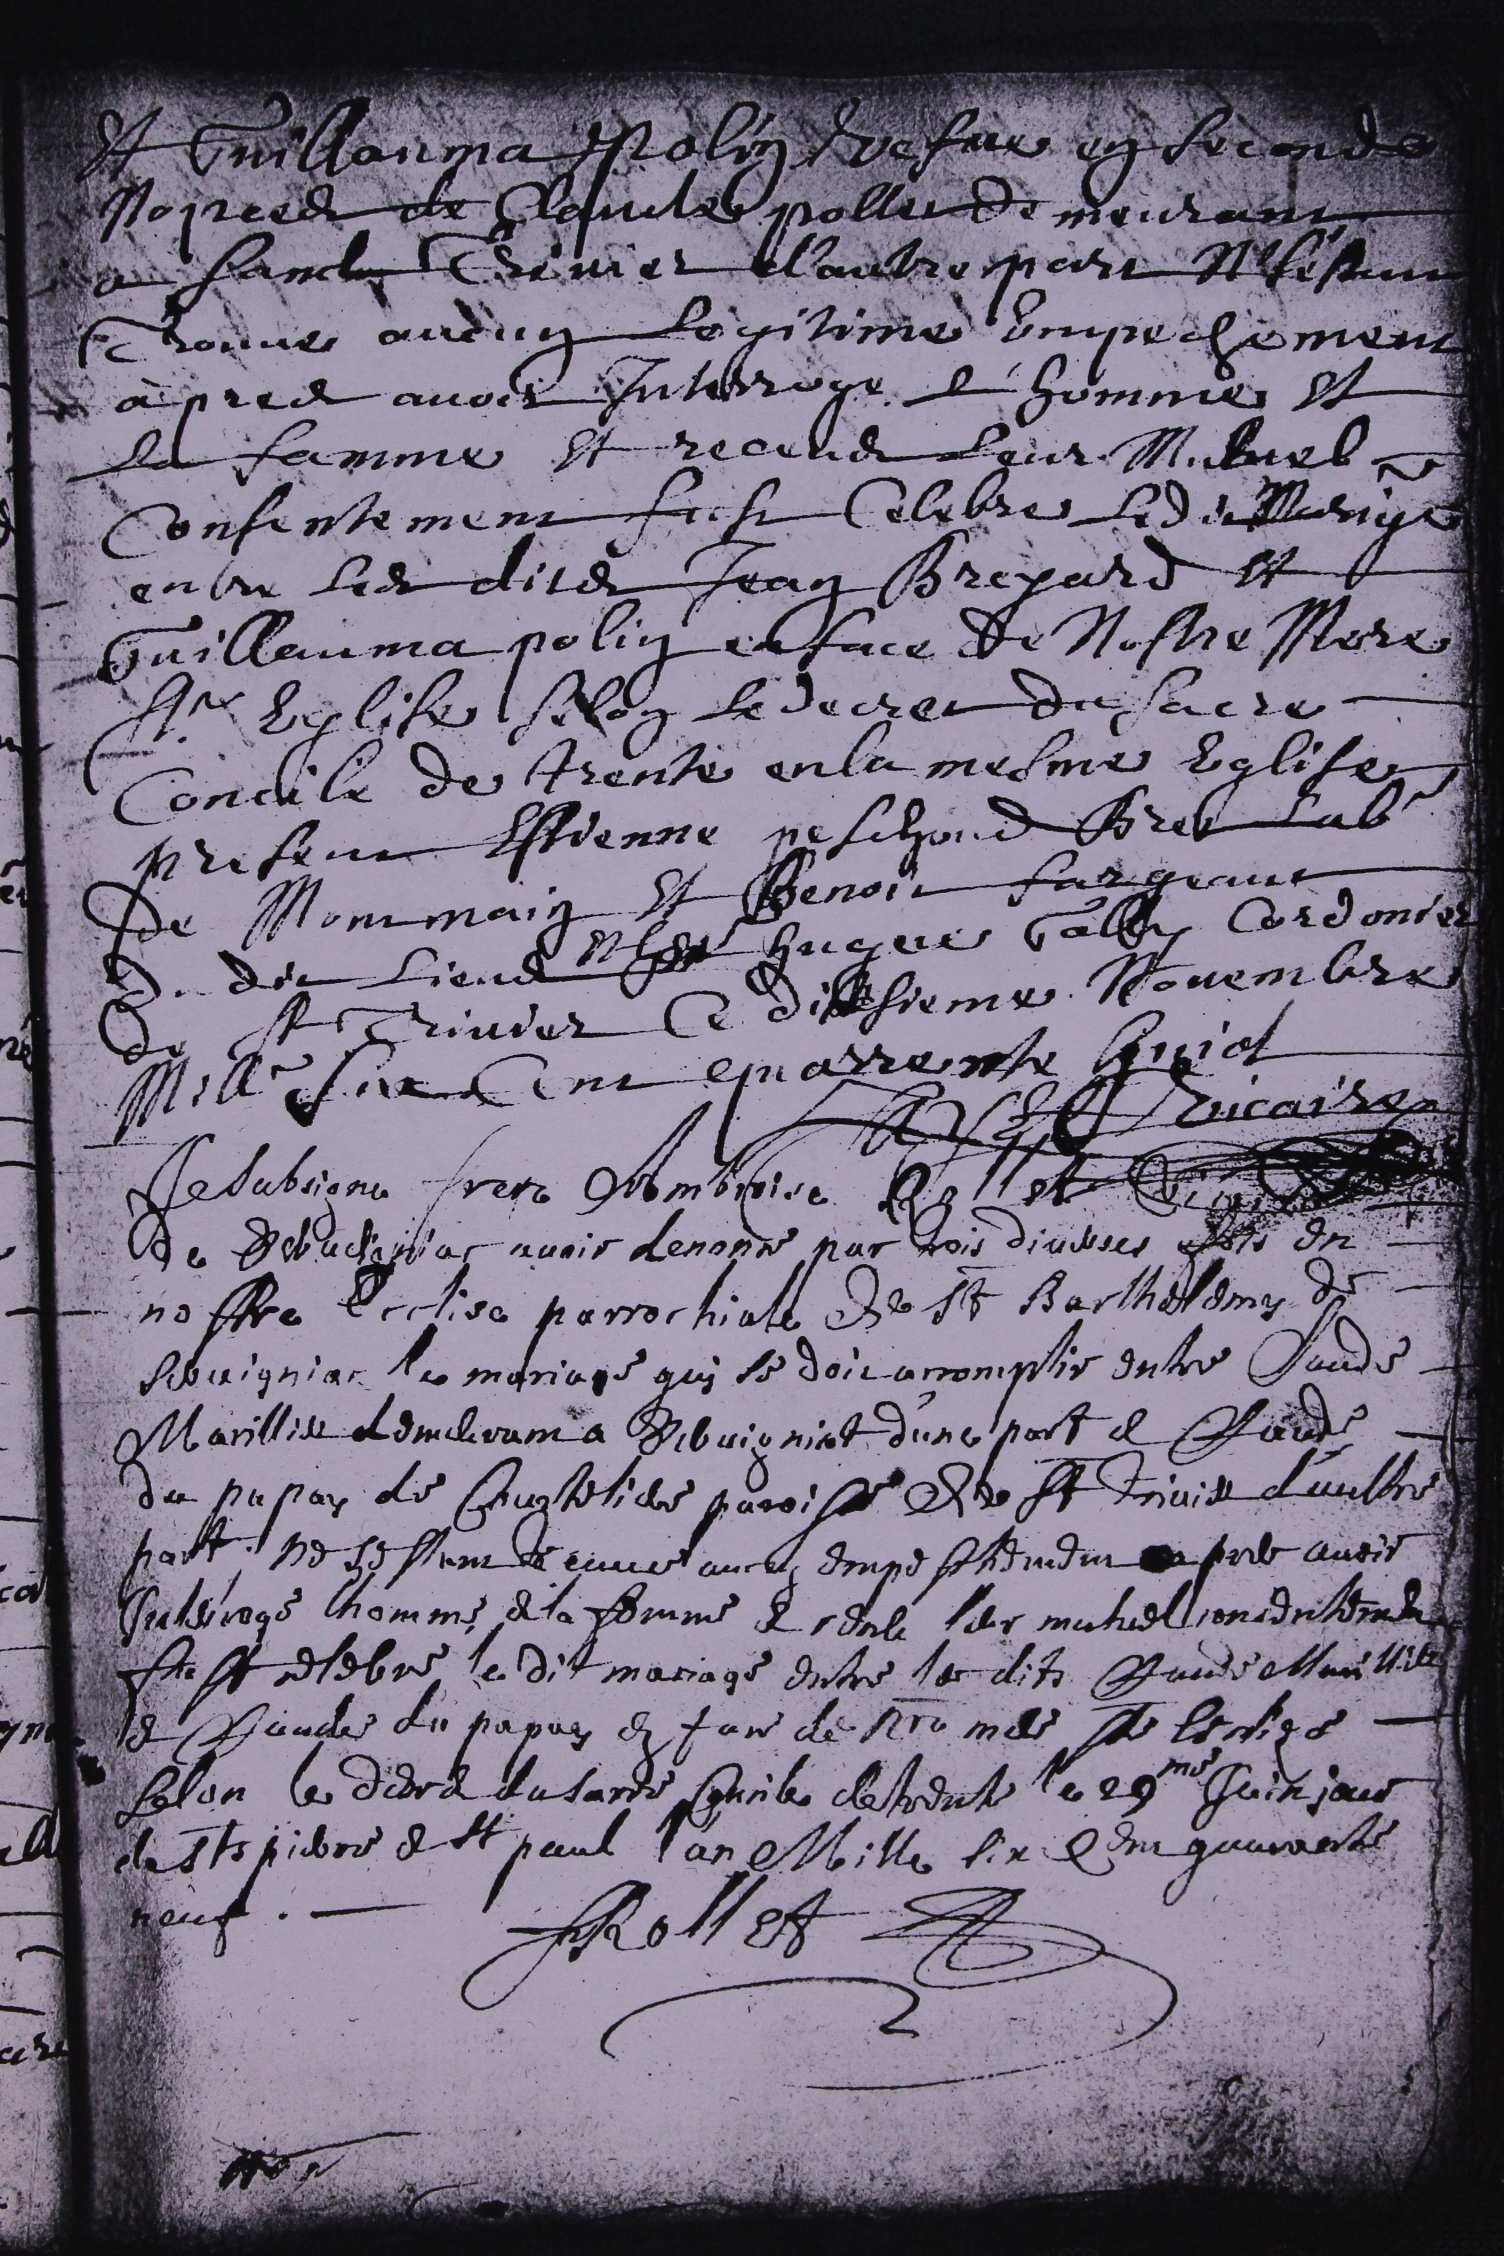 Et Guillauma Polin vefue en seconde
Nopces de Claude pollet demeurant
a sainct Triuier d'autre part N'sestant
Trouue aucun Legitime Empechement
apres auoir Interroge L'homme Et
La famme Et receus Leur Mutuel
Consentement fust Celebre Ledit Mariage
entre Les dites Jean Breyard Et
Guillauma polin en face de Nostre Mere
Ste Eglise selon Le decret du sacre
Concile de trente en la mesme Eglise
present Estienne peschoud Lab
de Montmain Et Benoit fargeant
du dit Lieu Et Hugue Cordonier
de St Triuier Ce Novembre
Mille six Cent quarrente huict
vicaire
Je subsigne frere Ambroise
de auoir denonse par trois diuerses fois en
nostre Ecclise parrochiale de St Barthelemy de
le mariage qui se doit accomplir entre Claude
Marillier demeurant a d'une part et Claude
du papay de paroisse de St Triuier d'aultre
part. Ne sestant aucun empeschement apres auoir
Interroge lhomme et la femme et leur mutuel consentement
fust celebre le dit mariage entre les dits Claude Marillier
et Claude du papay en face de nre mere ste Esclise
Selon le decret du sacre Concile de trente le 29me Juin jour
de Sts pierre et St paul l'an Mille six Cent quarante
neuf.
Rollet